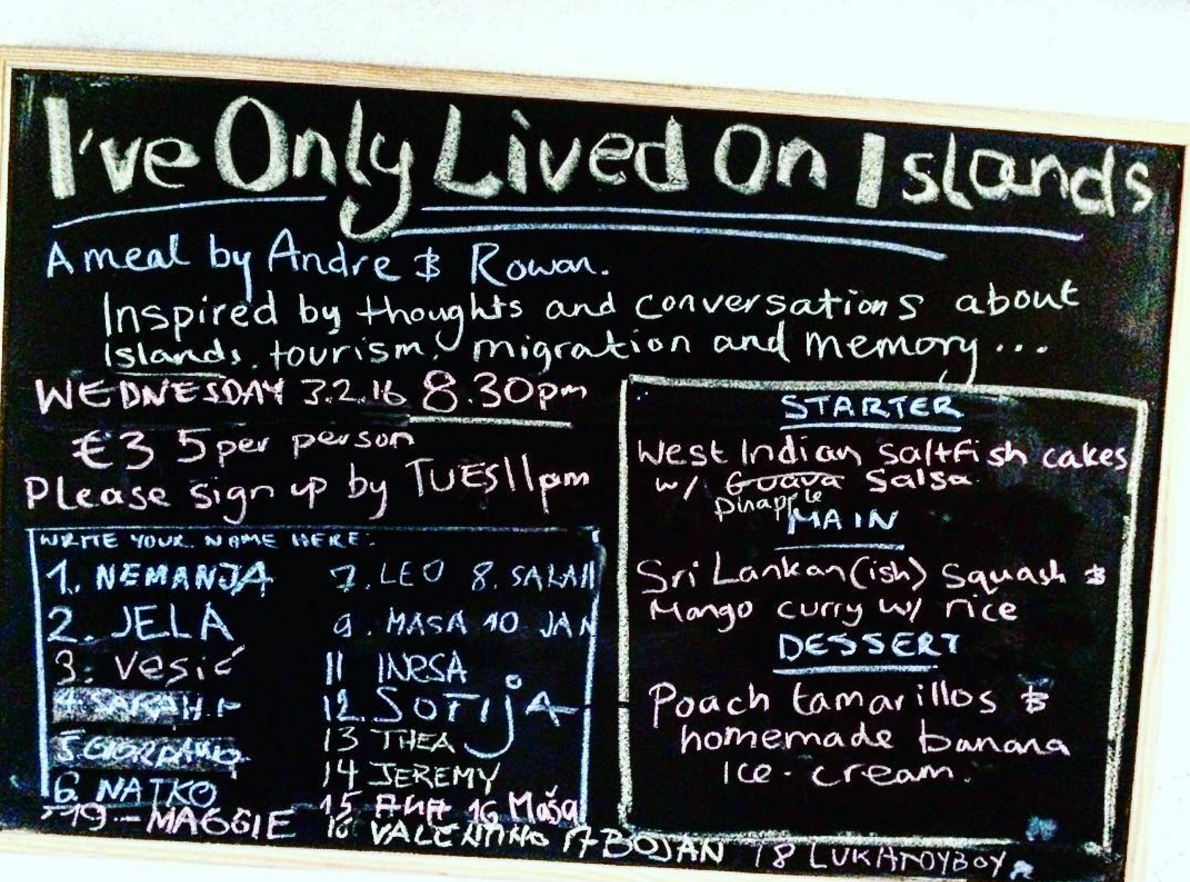 I've Only Lived On Islands
A meal by Andre & Rowan.
Inspired by thoughts and conversations about
Islands, tourism, migration and memory...
WEDNESDAY 3.2.16 8.30pm
€3 5 per person
Please sign up by TUES 11pm
WRITE YOUR NAME HERE:
1. NEMANJA
2. JELA
3. Vesić
4 SARAH.
5
6. NATKO
7. LEO 8. SALAH
9. MASA 10 JAN
11 INESA
12 SOTIJA
13 THEA
14 JEREMY
15 ANA 16 Maša
16 VALENTINO 17 BOJAN 18 LUKATOYBOY
19 - MAGGIE
STARTER
West Indian saltfish cakes
w/ Guava Salsa
Pinapple
MAIN
Sri Lankan(ish) Squash &
Mango curry w/ rice
DESSERT
Poach tamarillos &
homemade banana
Ice-cream.